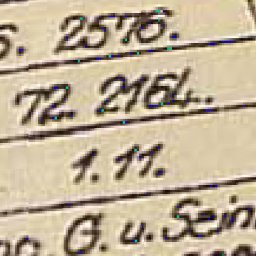 5. 2576.
72. 2164.
1.11.
G. u. Sein